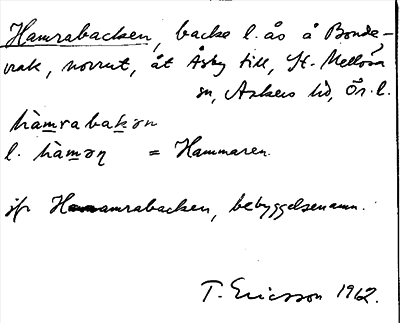 Hamrabacken, backe l. ås å Bonde-
vrak, norrut, åt Åsby till, St. Mellösa
sn, Askers hd, Ör. l.
hàmrabakən
l. hàməṇ = Hammaren.
jfr Hamrabacken, bebyggelsenamn.
T. Ericsson 1962.